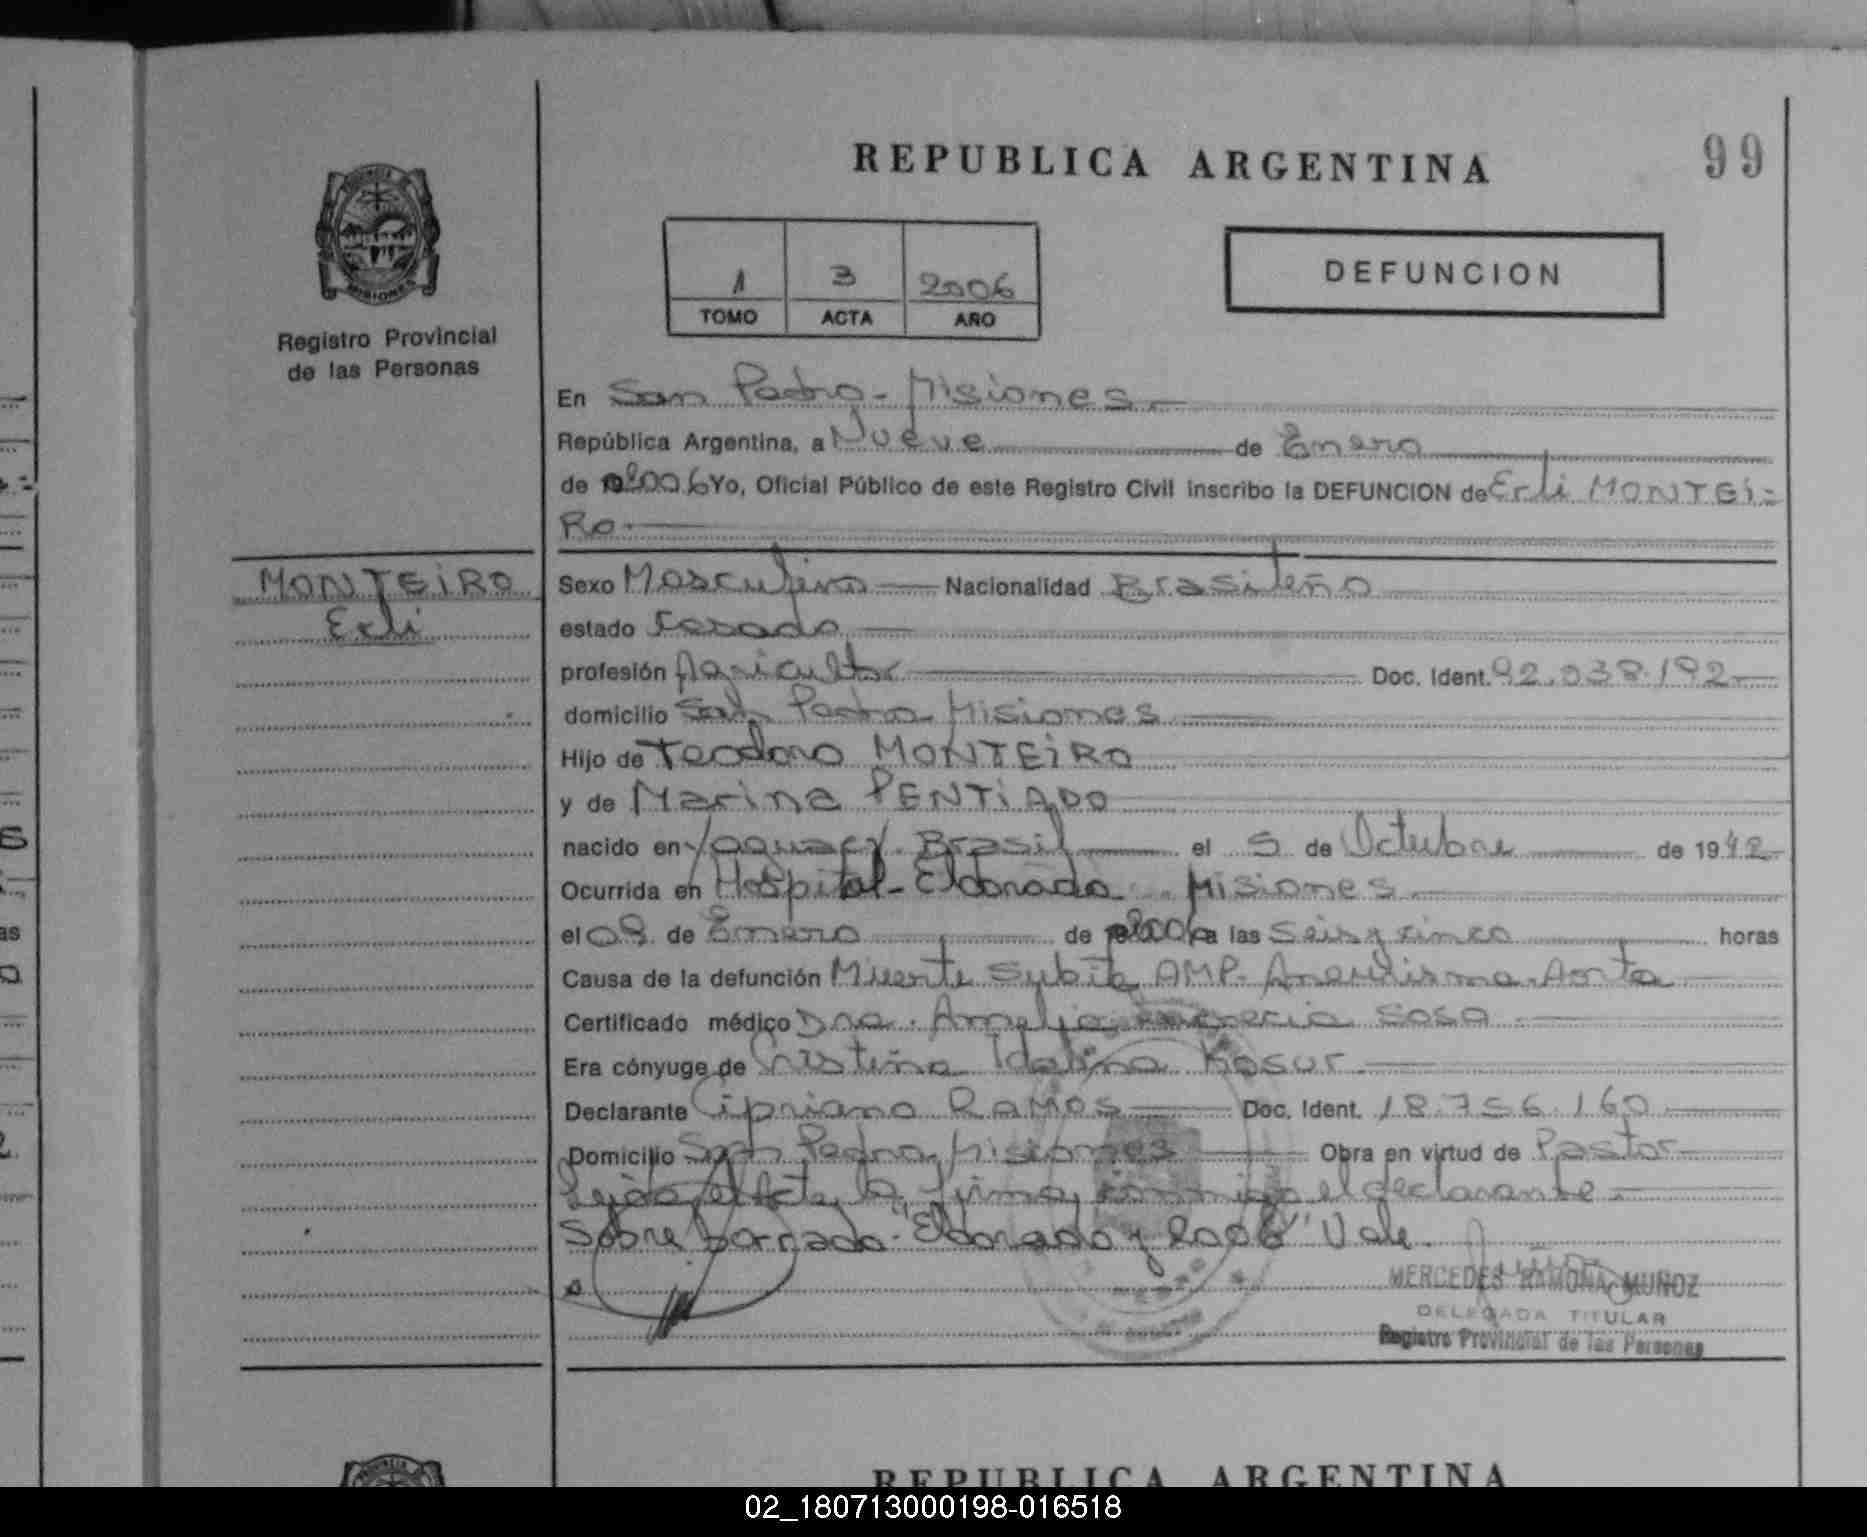 REPUBLICA ARGENTINA
99
1 3 2006
TOMO ACTA AÑO
DEFUNCION
MISIONES
Registro Provincial
de las Personas
En San Pedro - Misiones
República Argentina, a Nueve de Enero
de 2006 Yo, Oficial Público de este Registro Civil inscribo la DEFUNCION de Erli MONTEI=
RO
MONTEIRO
Erli
Sexo Masculino Nacionalidad Brasileño
estado Casado
profesión Agricultor Doc. Ident. 92.038.192
domicilio San Pedro Misiones
Hijo de Teodoro MONTEIRO
y de Marina PENTiADO
nacido en Brasil el 5 de Octubre de 1942
Ocurrida en Hospital - Eldorado Misiones
el 08 de Enero de 2006 a las Seis y cinco horas
Causa de la defunción Muerte Subita AMP. Aneurisma Aorta
Certificado médico Dra. Amelia Sosa
Era cónyuge de Cristina Idalina Kosur
Declarante Cipriano RAMOS Doc. Ident. 18.756.160
Domicilio San Pedro Misiones Obra en virtud de Pastor
Leida el Acta la firma conmigo el declarante.
Sobre borrado. "Eldorado y 2006" Vale.
MERCEDES RAMONA MUÑOZ
DELEGADA TITULAR
Registro Provincial de las Personas
REPUBLICA ARGENTINA
02_180713000198-016518